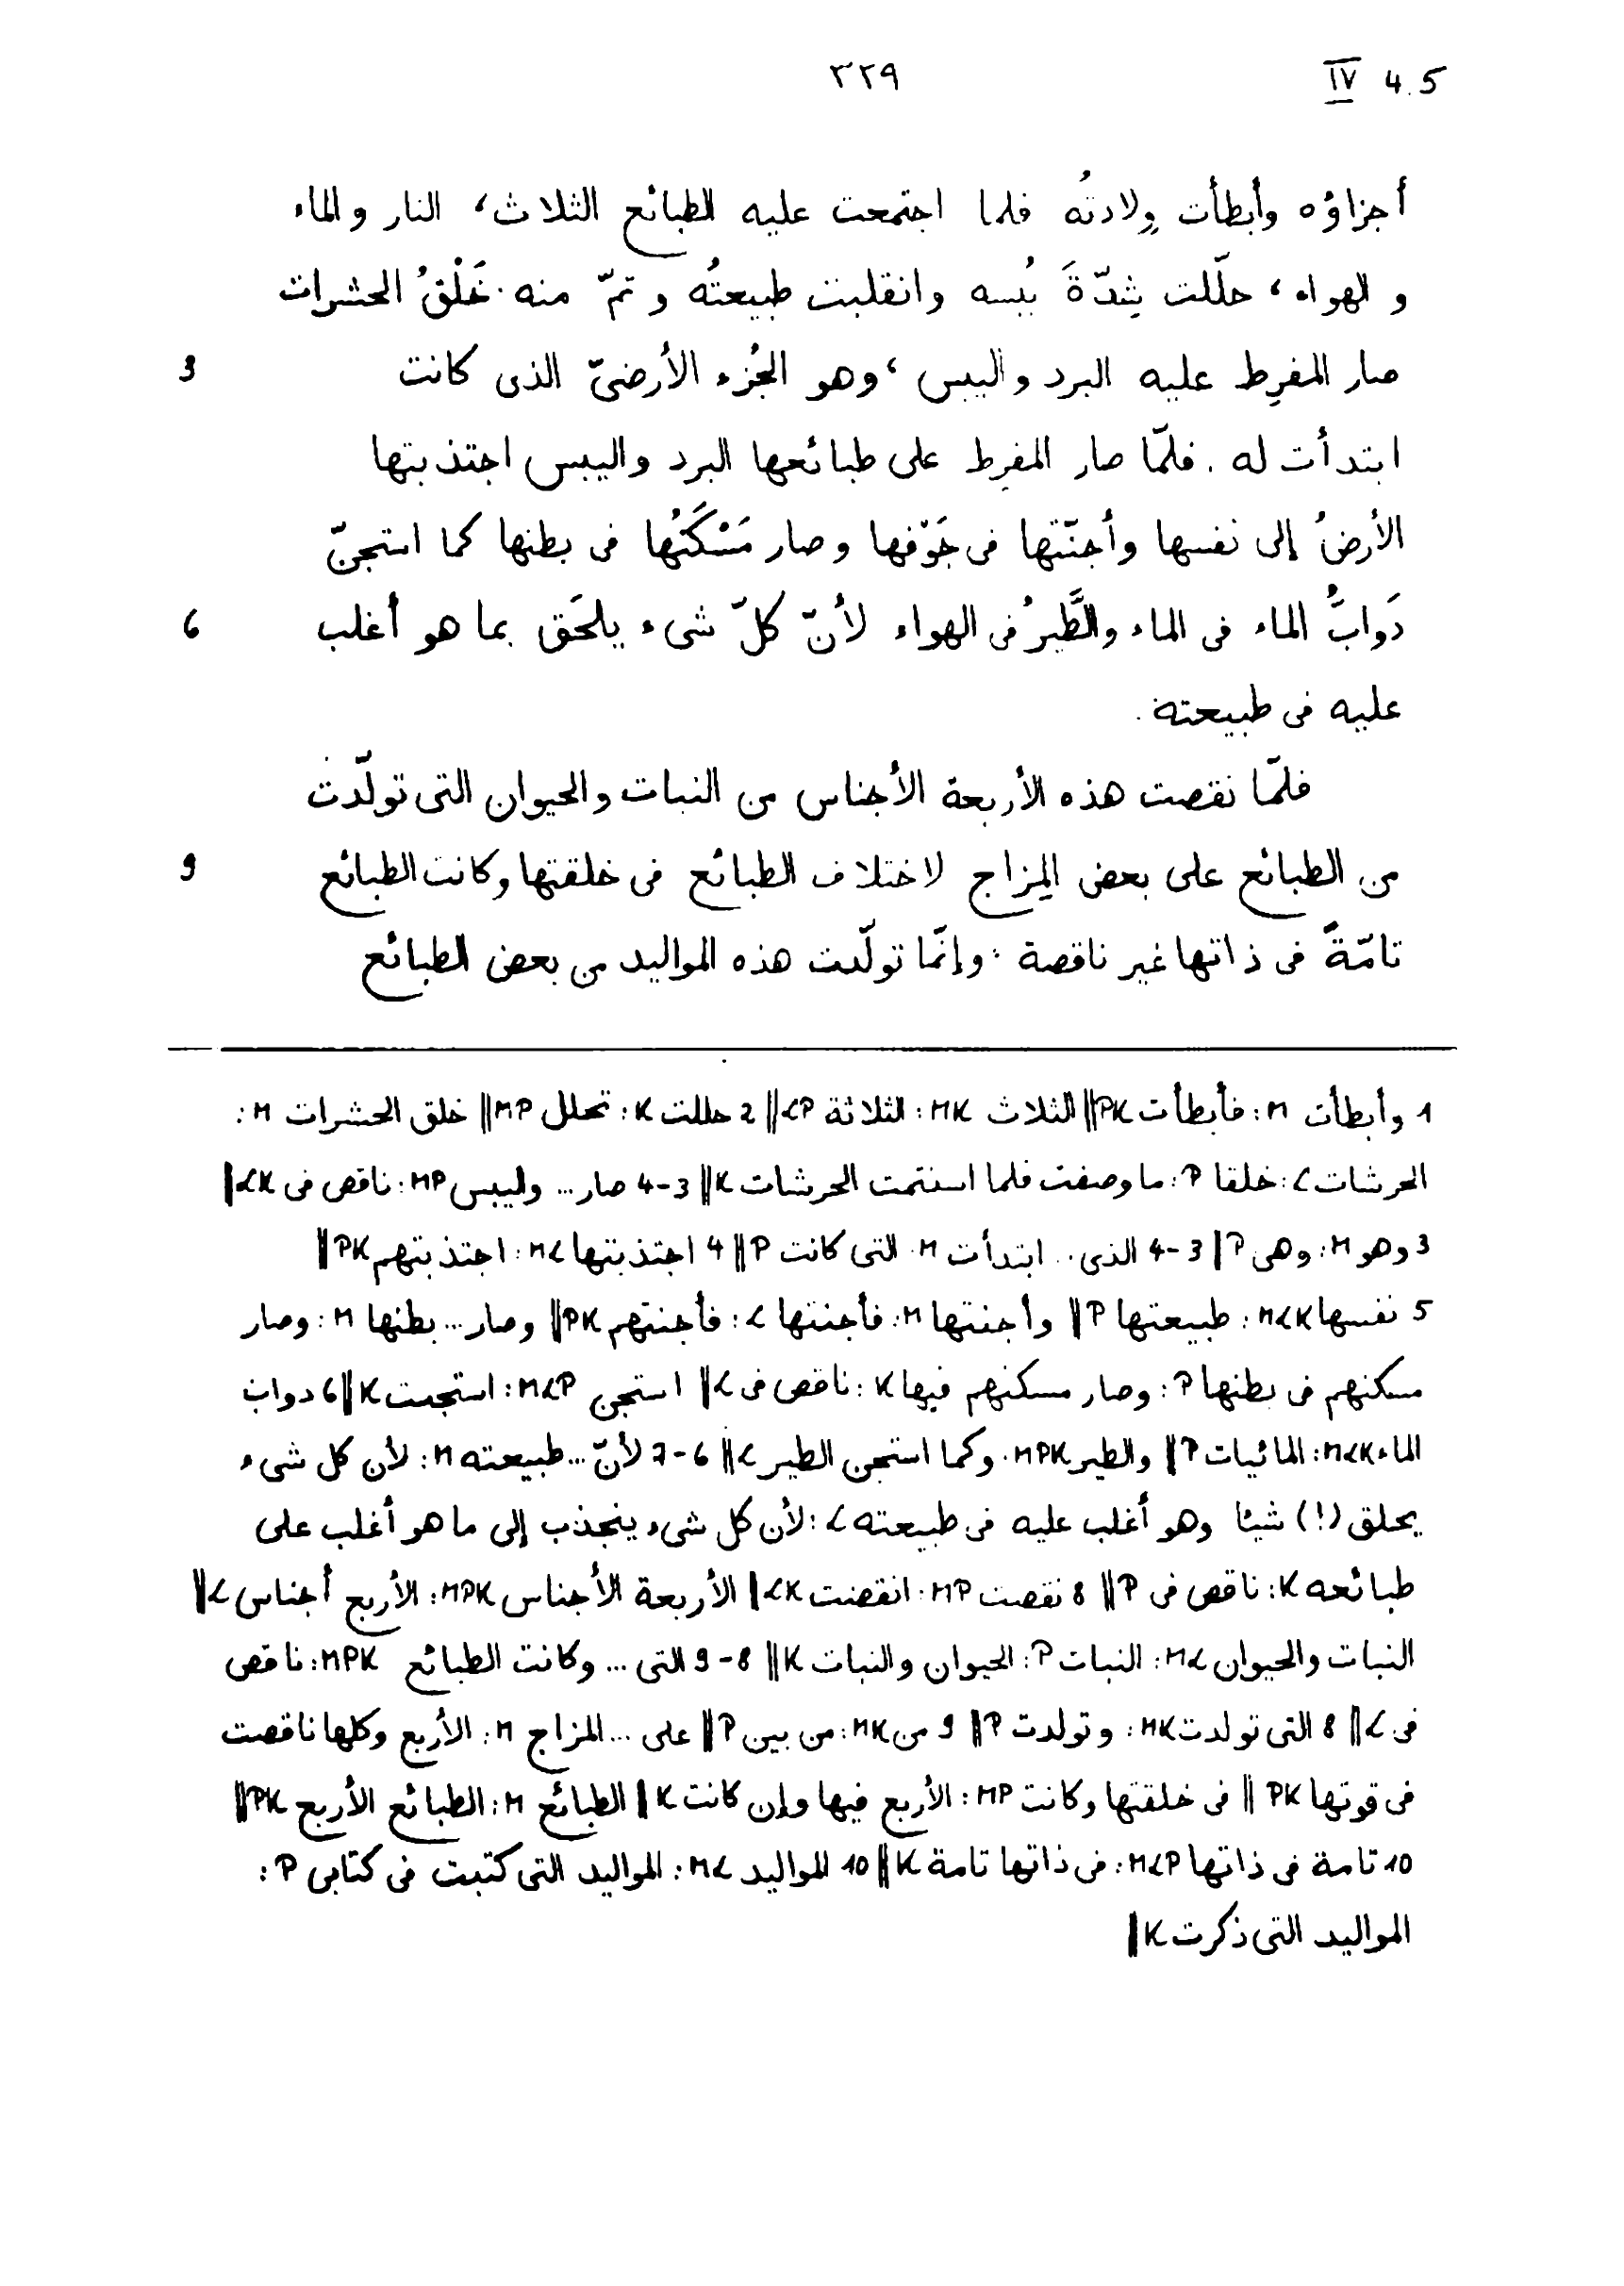 ٣٢٩ IV 4.5
أجزاؤه وأبطأت وِلادتُه فلما اجتمعت عليه الطبائع الثلاث، النار والماء
والهواء، حلّلت شِدّةَ يُبسه وانقلبت طبيعتُه وتمّ منه. خَلْقُ الحشرات
صار المفرِط عليه البرد واليبس، وهو الجُزء الأرضىّ الذى كانت 3
ابتدأت له. فلمّا صار المفرِط على طبائعها البرد واليبس اجتذبتها
الأرضُ إلى نفسها وأجنّتها فى جَوْفها وصار مَسْكَنُها فى بطنها كما استجنّ
دَوابُّ الماء فى الماء والطَّيرُ فى الهواء لأنّ كلّ شىء يلحَق بما هو أغلب 6
عليه فى طبيعته.
فلمّا نقصت هذه الأربعة الأجناس من النبات والحيوان التى تولّدت
من الطبائع على بعض المِزاج لاختلاف الطبائع فى خلقتها وكانت الطبائع 9
تامّةً فى ذاتها غير ناقصة؛ وإنّما تولّدت هذه المواليد من بعض الطبائع
1 وأبطأت M: فأبطأت PK‖ الثلاث MK: الثلاثة LP‖ 2 حللت K: تحلل MP‖ خلق الحشرات M:
الحرشات L: خلقا P: ما وصفت فلما استتمت الحرشات K‖ 3-4 صار... واليبس MP: ناقص فى LK|
3 وهو M: وهى P| 3-4 الذى.. ابتدأت M: التى كانت P‖ 4 اجتذبتها ML: اجتذبتهم PK‖
5 نفسها MLK: طبيعتها P‖ وأجنتها M: فأجنتها L: فأجنتهم PK‖ وصار... بطنها M: وصار
مسكنهم فى بطنها P: وصار مسكنهم فيها K: ناقص فى L‖ استجن MLP: استجنت K‖ 6 دواب
الماء MLK: المائيات P‖ والطير MPK: وكما استجن الطير L‖ 6-7 لأنّ... طبيعته M: لأن كل شىء
يحلق (!) شيئا وهو أغلب عليه فى طبيعته L: لأن كل شىء ينجذب إلى ما هو أغلب على
طبائعه K: ناقص فى P‖ 8 نقصت MP: انقضت LK| الأربعة الأجناس MPK: الأربع أجناس L‖
النبات والحيوان ML: النبات P: الحيوان والنبات K‖ 8-9 التى ... وكانت الطبائع MPK: ناقص
فى L‖ 8 التى تولدت MK: وتولدت P‖ 9 من MK: من بين P‖ على ... المزاج M: الأربع وكلها ناقصت
فى قوتها PK‖ فى خلقتها وكانت MP: الأربع فيها وإن كانت K| الطبائع M: الطبائع الأربع PK‖
10 تامة فى ذاتها MLP: فى ذاتها تامة K‖ 10 المواليد ML: المواليد التى كتبت فى كتابى P:
المواليد التى ذكرت K|